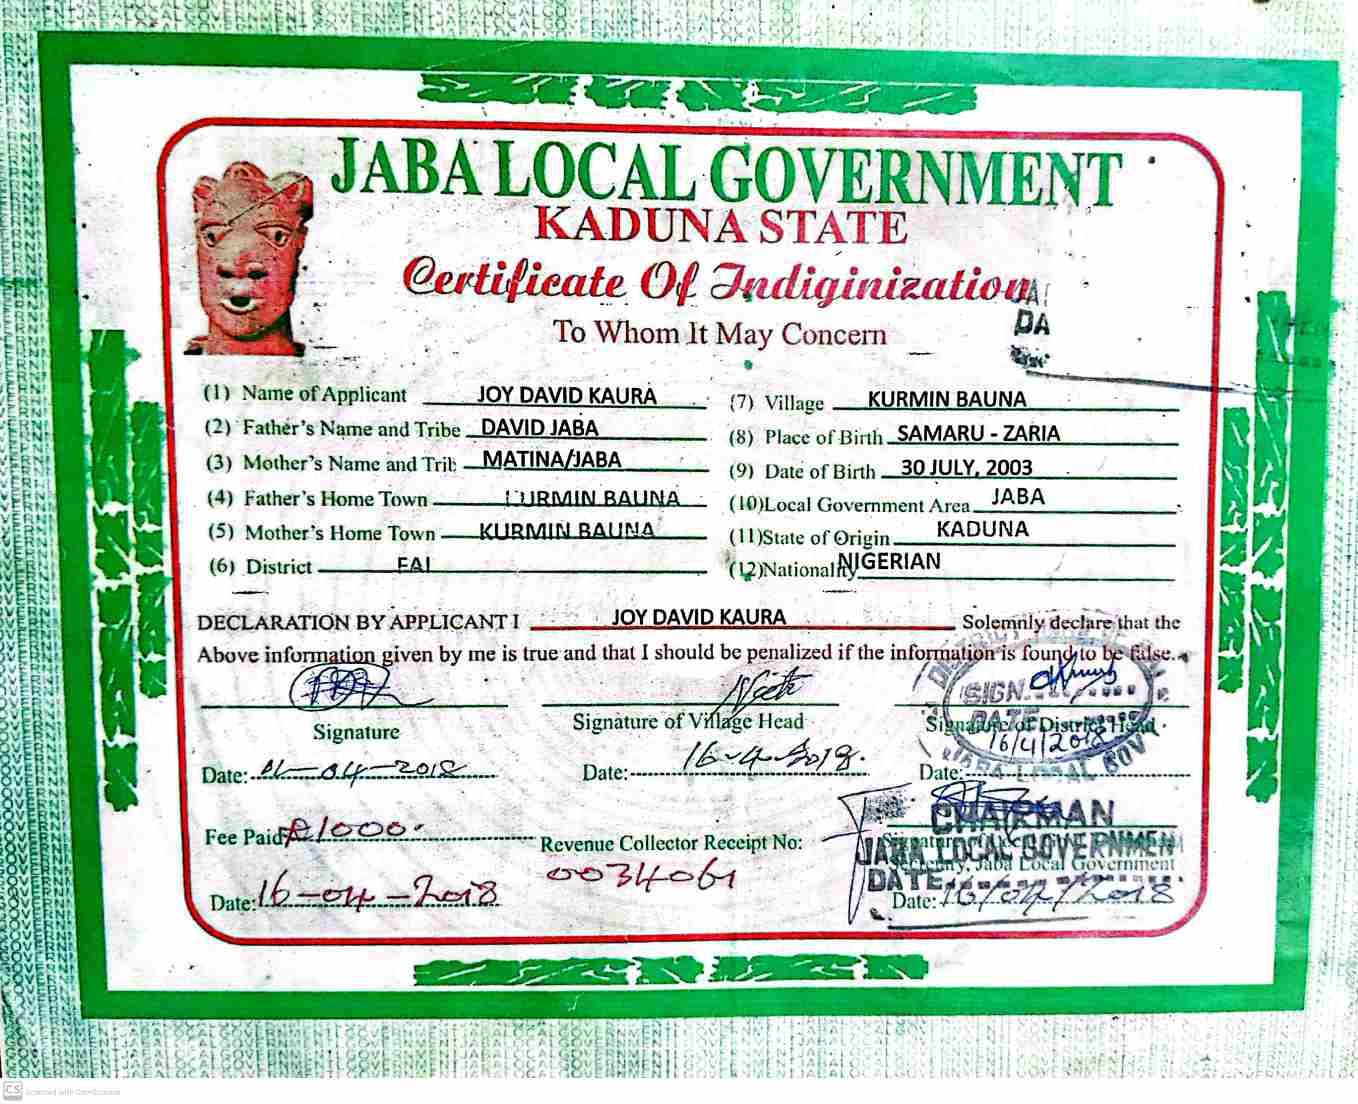 JABA LOCAL GOVERNMENT
KADUNA STATE
Certificate Of Indiginization
To Whom It May Concern
DA
(1) Name of Applicant JOY DAVID KAURA
(2) Father's Name and Tribe DAVID JABA
(3) Mother's Name and Trib MATINA/JABA
(4) Father's Home Town KURMIN BAUNA
(5) Mother's Home Town KURMIN BAUNA
(6) District FAI
(7) Village KURMIN BAUNA
(8) Place of Birth SAMARU - ZARIA
(9) Date of Birth 30 JULY, 2003
(10)Local Government Area JABA
(11)State of Origin KADUNA
(12)Nationality NIGERIAN
DECLARATION BY APPLICANT I JOY DAVID KAURA Solemnly declare that the
Above information given by me is true and that I should be penalized if the information is found to be false.
Signature
Signature of Village Head
Signature of District Head
SIGN
DATE
16/4/2018
JABA LOCAL GOV
Date: 01-04-2018
Date: 16-4-2018.
Date:
Fee Paid ₦1000.
Revenue Collector Receipt No:
0034061
CHAIRMAN
JABA LOCAL GOVERNMEN
Jaba Local Government
DATE
Date: 16-04-2018
Date: 16/04/2018
CS Scanned with CamScanner